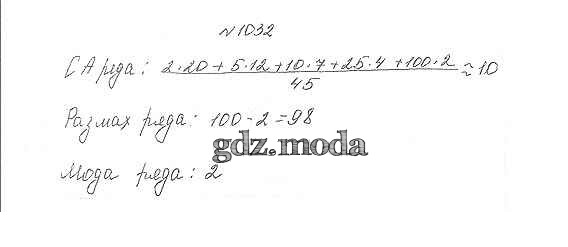 №1032
СА ряда: 2·20 + 5·12 + 10·7 + 25·4 + 100·2 / 45 ≈ 10
Размах ряда: 100 - 2 = 98
gdz.moda
Мода ряда: 2